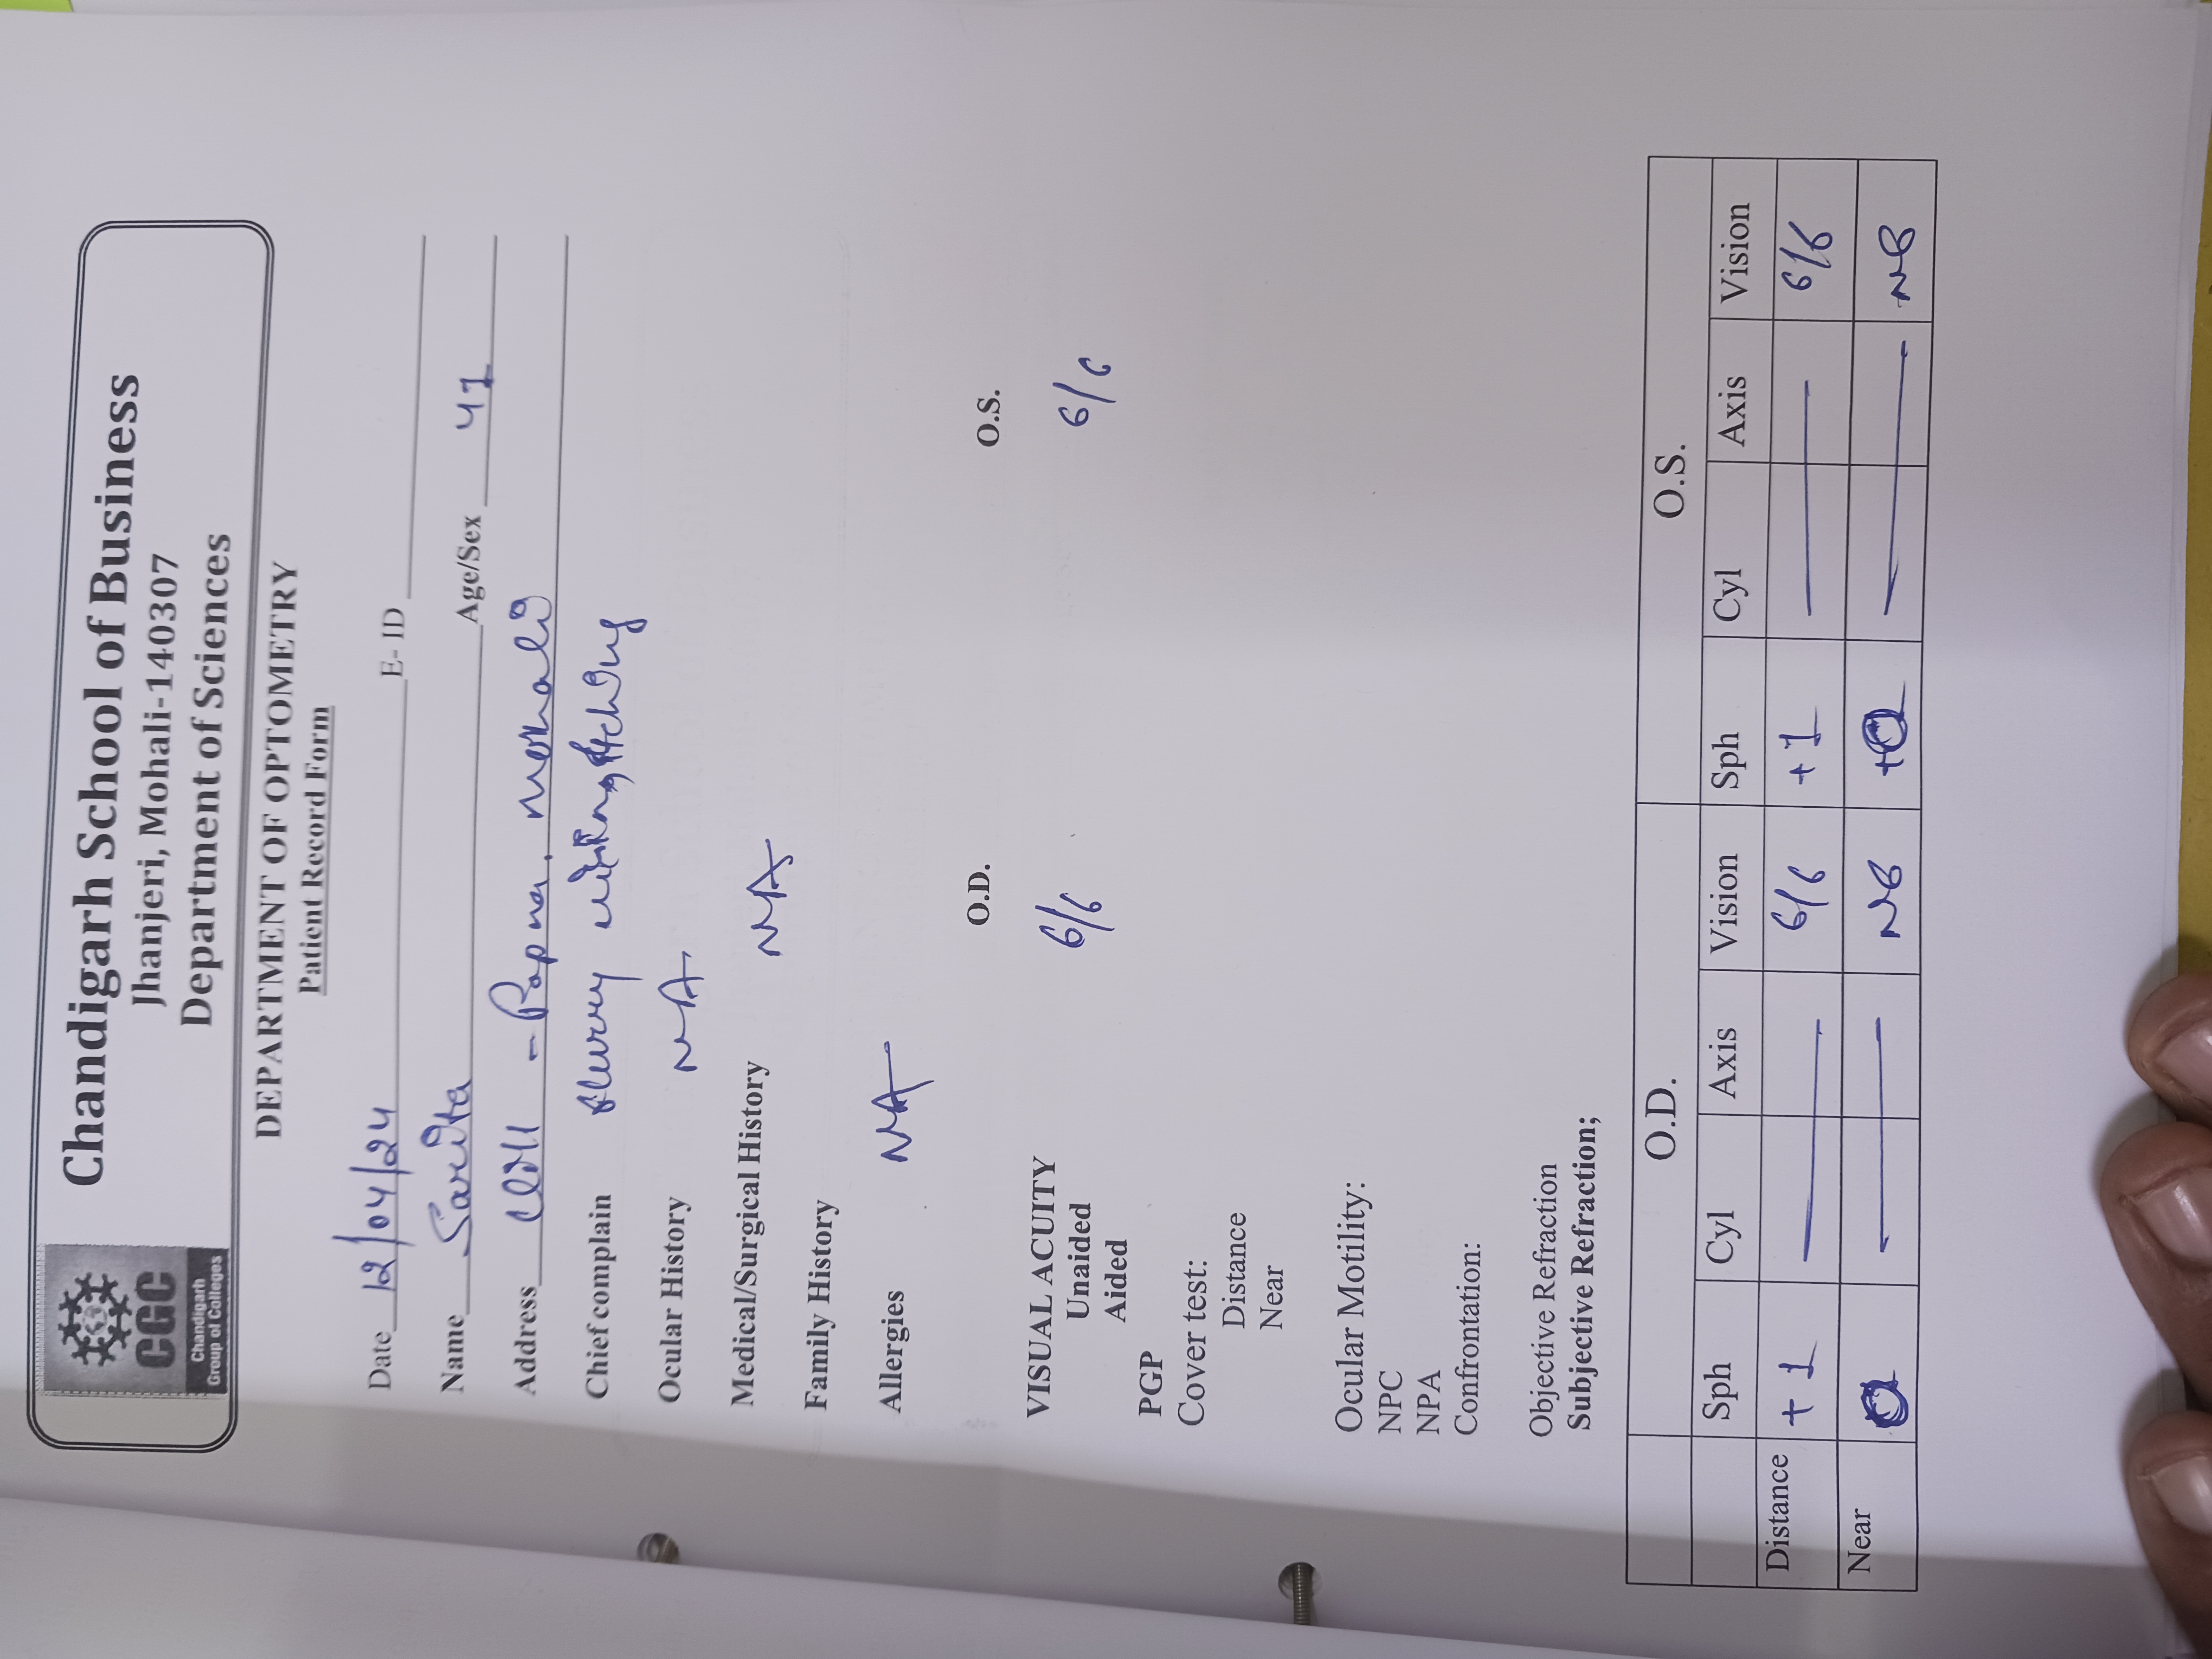 CGC
Chandigarh
Group of Colleges
Chandigarh School of Business
Jhanjeri, Mohali-140307
Department of Sciences
DEPARTMENT OF OPTOMETRY
Patient Record Form
Date 12/04/24 E- ID
Name Sarita Age/Sex 41
Address - Papna. Mohali
Chief complain Blurry vision, Itching
Ocular History NA
Medical/Surgical History NA
Family History
Allergies NA
O.D. O.S.
VISUAL ACUITY
Unaided 6/6 6/6
Aided
PGP
Cover test:
Distance
Near
Ocular Motility:
NPC
NPA
Confrontation:
Objective Refraction
Subjective Refraction;
O.D. O.S.
Sph Cyl Axis Vision Sph Cyl Axis Vision
Distance +1 — 6/6 +1 — 6/6
Near — N6 — N6